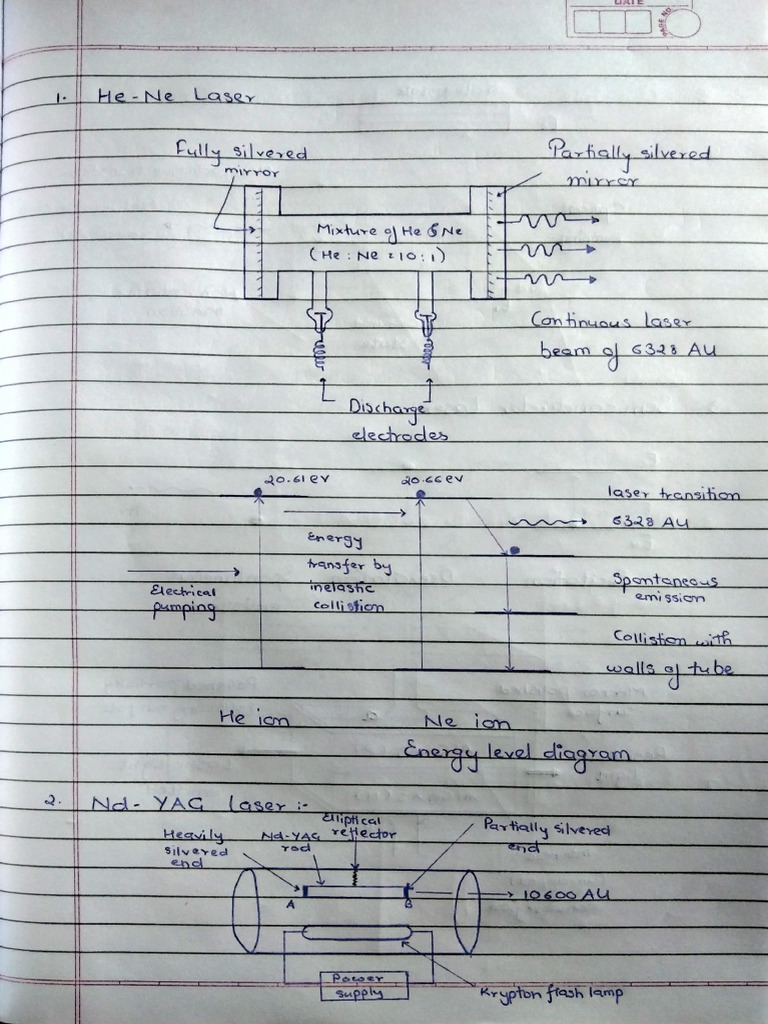 DATE
PAGE NO
1. He-Ne Laser
Fully silvered
mirror
Partially silvered
mirror
Mixture of He & Ne
(He : Ne = 10 : 1)
Continuous laser
beam of 6328 AU
Discharge
electrodes
20.61 eV
20.66 eV
laser transition
6328 AU
Energy
transfer by
inelastic
collision
Electrical
pumping
Spontaneous
emission
Collistion with
walls of tube
He ion
Ne ion
Energy level diagram
2. Nd-YAG Laser :-
Elliptical
reflector
Heavily
silvered
end
Nd-YAG
rod
Partially silvered
end
A
B
10600 AU
Power
supply
Krypton flash lamp